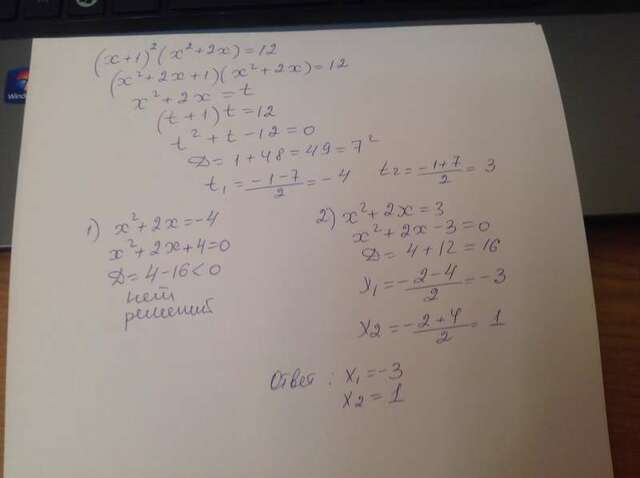 (x+1)²(x²+2x)=12
(x²+2x+1)(x²+2x)=12
x²+2x=t
(t+1)t=12
t²+t-12=0
D=1+48=49=7²
t₁=(-1-7)/2=-4 t₂=(-1+7)/2=3
1) x²+2x=-4
x²+2x+4=0
D=4-16<0
нет
решений
2) x²+2x=3
x²+2x-3=0
D=4+12=16
x₁=(-2-4)/2=-3
x₂=(-2+4)/2=1
Ответ: x₁=-3
x₂=1
Windows